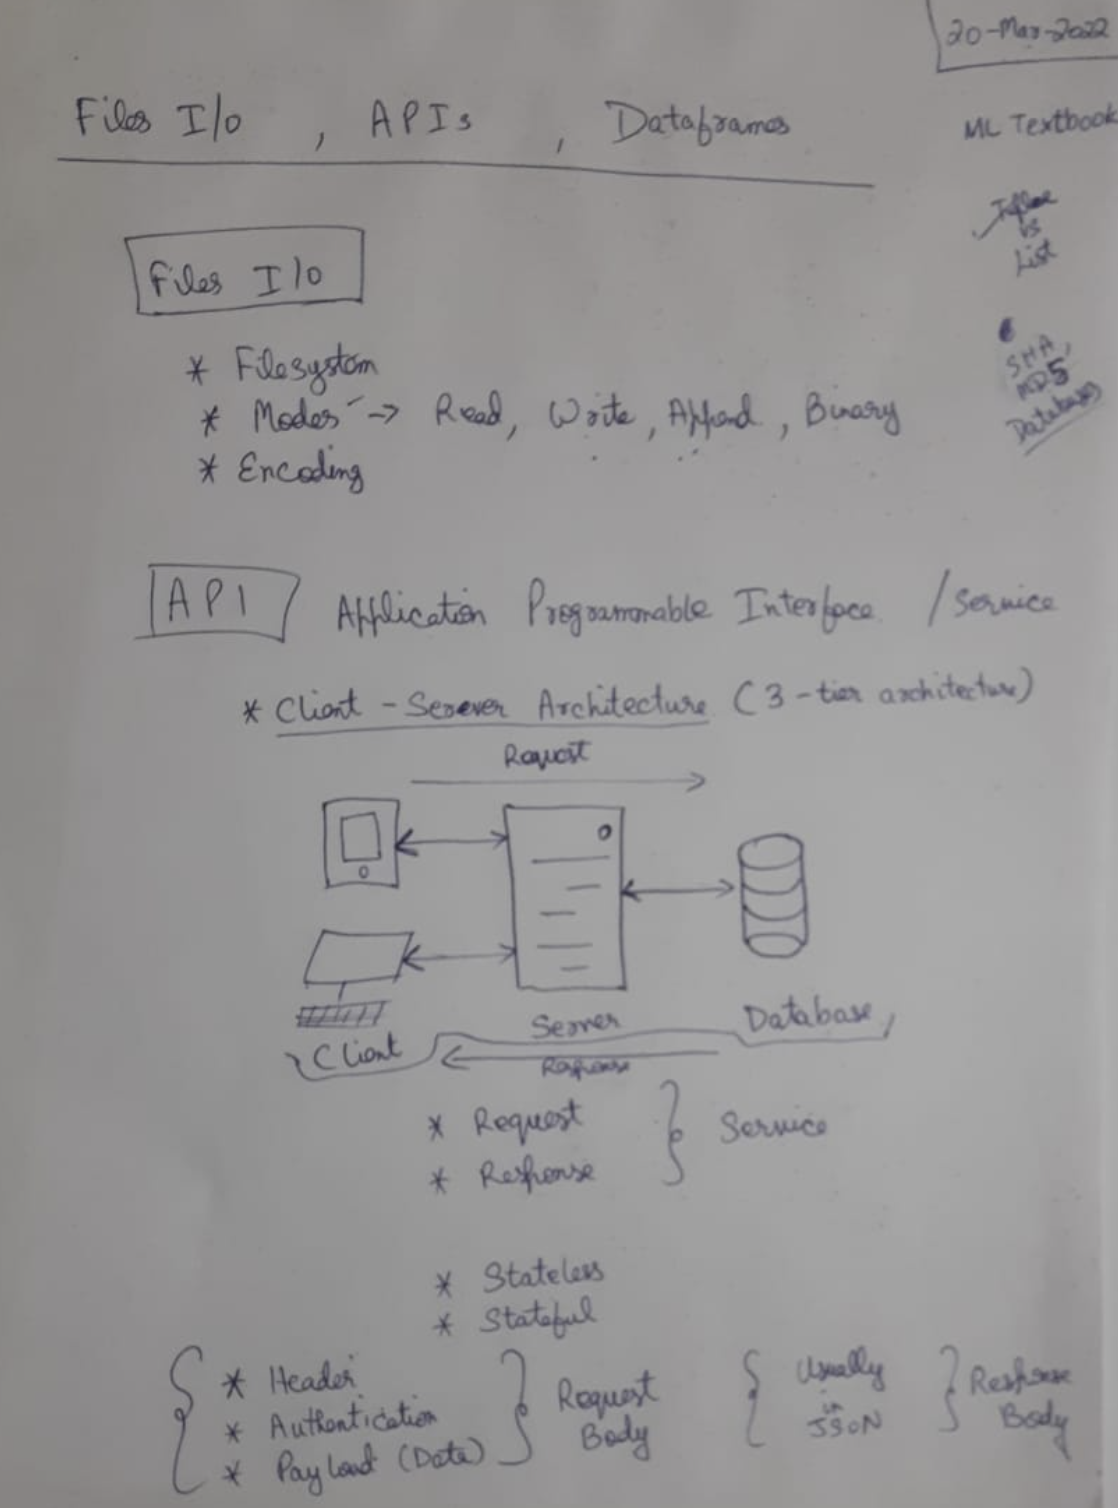 20-Mar-2022
Files I/O , APIs , Dataframes
ML Textbook
vs
List
Files I/O
SHA,
MD5
Databases
* Filesystem
* Modes -> Read, Write, Append, Binary
* Encoding
API Application Programmable Interface / Service
* Client - Server Architecture (3-tier architecture)
Request
Server
Database
Client
Response
* Request
* Response
Service
* Stateless
* Stateful
* Header
* Authentication
* Payload (Data)
Request
Body
Usually
in
JSON
Response
Body